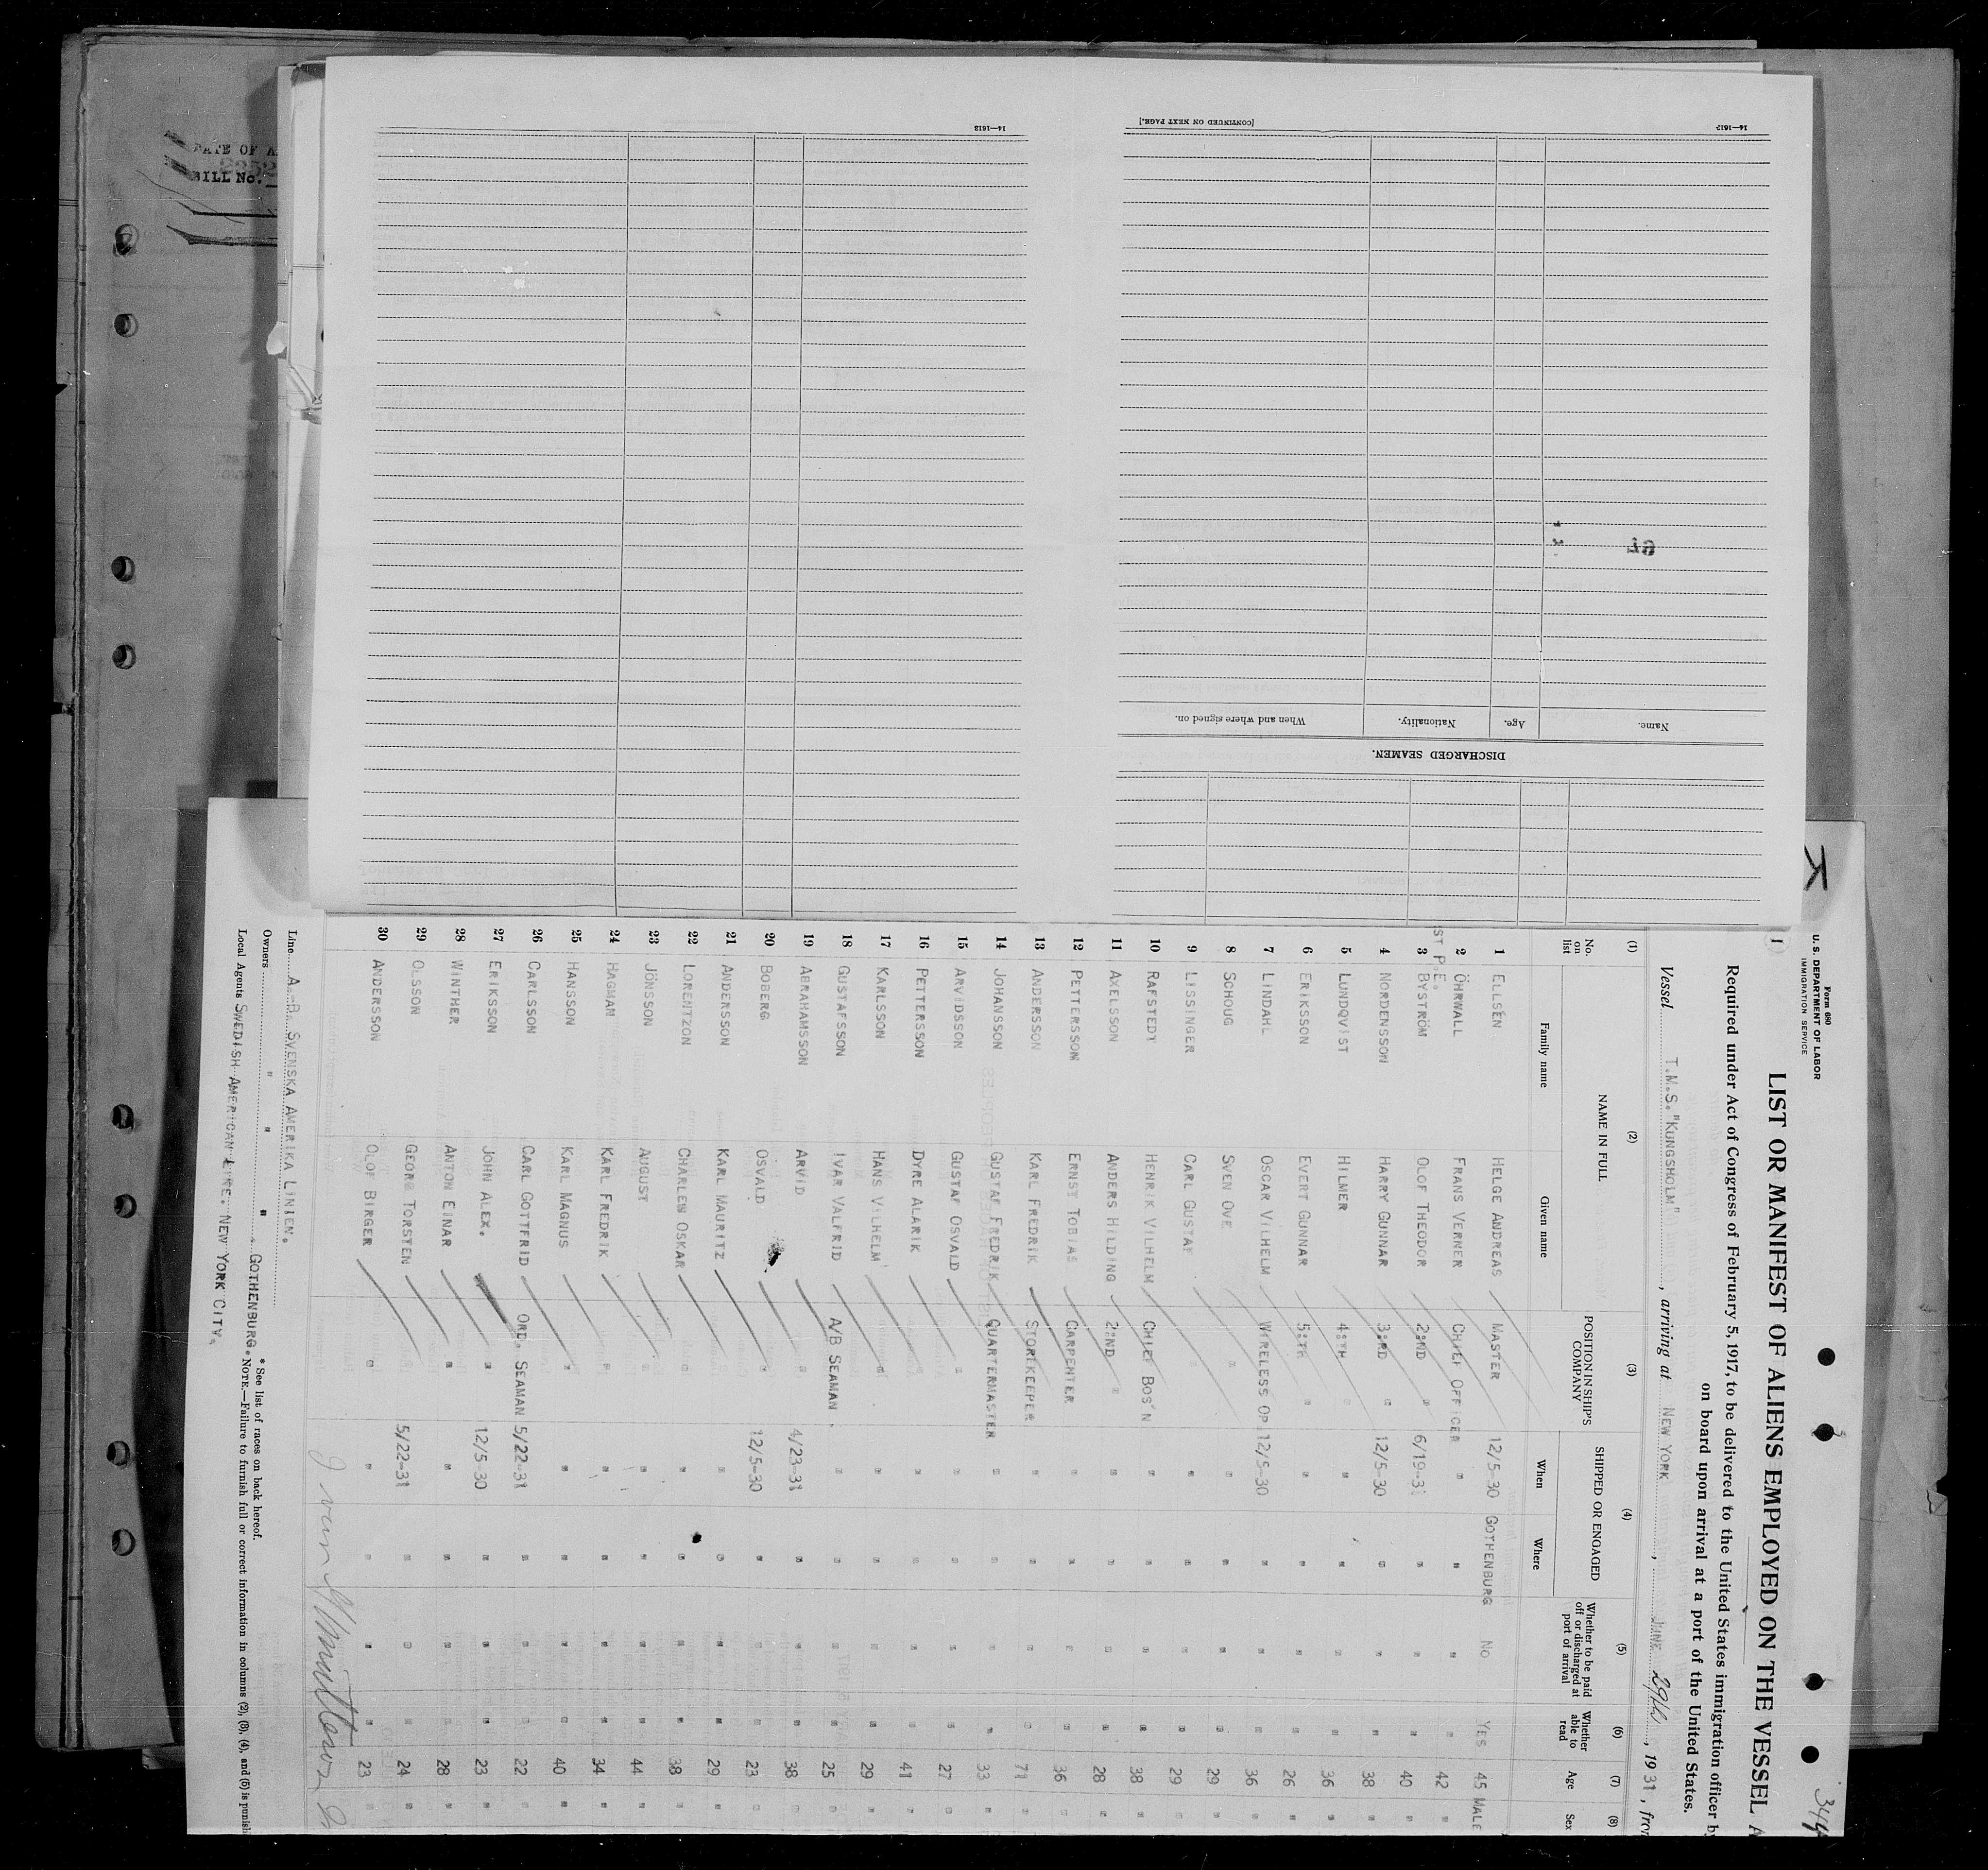 DATE OF A
BILL No.
14—1613
[CONTINUED ON NEXT PAGE.]
14—1612
DISCHARGED SEAMEN.
Name. Age. Nationality. When and where signed on.
K
Form 680
U. S. DEPARTMENT OF LABOR
IMMIGRATION SERVICE
344
LIST OR MANIFEST OF ALIENS EMPLOYED ON THE VESSEL A
Required under Act of Congress of February 5, 1917, to be delivered to the United States immigration officer by
on board upon arrival at a port of the United States.
Vessel T.M.S."KUNGSHOLM" , arriving at NEW YORK , JUNE 29th , 1931, from
(1) (2) (3) (4) (5) (6) (7) (8)
No. on list NAME IN FULL POSITION IN SHIP'S COMPANY SHIPPED OR ENGAGED Whether to be paid off or discharged at port of arrival Whether able to read Age Sex
Family name Given name When Where
1 ELLSÉN HELGE ANDREAS MASTER 12/5-30 GOTHENBURG NO YES 45 MALE
2 ÖHRWALL FRANS VERNER CHIEF OFFICER " " " " 42 "
ST P.E.
3 BYSTRÖM OLOF THEODOR 2:ND " 6/19-31 " " " 40 "
4 NORDENSSON HARRY GUNNAR 3:RD " 12/5-30 " " " 38 "
5 LUNDQVIST HILMER 4:TH " " " " " 36 "
6 ERIKSSON EVERT GUNNAR 5:TH " " " " " 26 "
7 LINDAHL OSCAR VILHELM WIRELESS OP. 12/5-30 " " " 36 "
8 SCHOUG SVEN OVE " " " " " 29 "
9 LISSINGER CARL GUSTAF " " " " " 29 "
10 RAFSTEDT HENRIK VILHELM CHIEF BOS'N " " " " 38 "
11 AXELSSON ANDERS HILDING 2:ND " " " " " 28 "
12 PETTERSSON ERNST TOBIAS CARPENTER " " " " 36 "
13 ANDERSSON KARL FREDRIK STOREKEEPER " " " " 71 "
14 JOHANSSON GUSTAF FREDRIK QUARTERMASTER " " " " 33 "
15 ARVIDSSON GUSTAF OSVALD " " " " " 27 "
16 PETTERSSON DYRE ALARIK " " " " " 41 "
17 KARLSSON HANS VILHELM " " " " " 29 "
18 GUSTAFSSON IVAR VALFRID A/B SEAMAN " " " " 25 "
19 ABRAHAMSSON ARVID " 4/23-31 " " " 38 "
20 BOBERG OSVALD " 12/5-30 " " " 23 "
21 ANDERSSON KARL MAURITZ " " " " " 29 "
22 LORENTZON CHARLEN OSKAR " " " " " 38 "
23 JÖNSSON AUGUST " " " " " 44 "
24 HAGMAN KARL FREDRIK " " " " " 34 "
25 HANSSON KARL MAGNUS " " " " " 40 "
26 CARLSSON CARL GOTTFRID ORD. SEAMAN 5/22-31 " " " 22 "
27 ERIKSSON JOHN ALEX. " 12/5-30 " " " 23 "
28 WINTHER ANTON EINAR " " " " " 28 "
29 OLSSON GEORG TORSTEN 5/22-31 " " " 24 "
30 ANDERSSON OLOF BIRGER " " " " " 23 "
Line A. B. SVENSKA AMERIKA LINIEN.
Owners " " " GOTHENBURG.
Local Agents SWEDISH AMERICAN LINE. NEW YORK CITY.
* See list of races on back hereof.
NOTE.—Failure to furnish full or correct information in columns (2), (3), (4), and (5) is punish